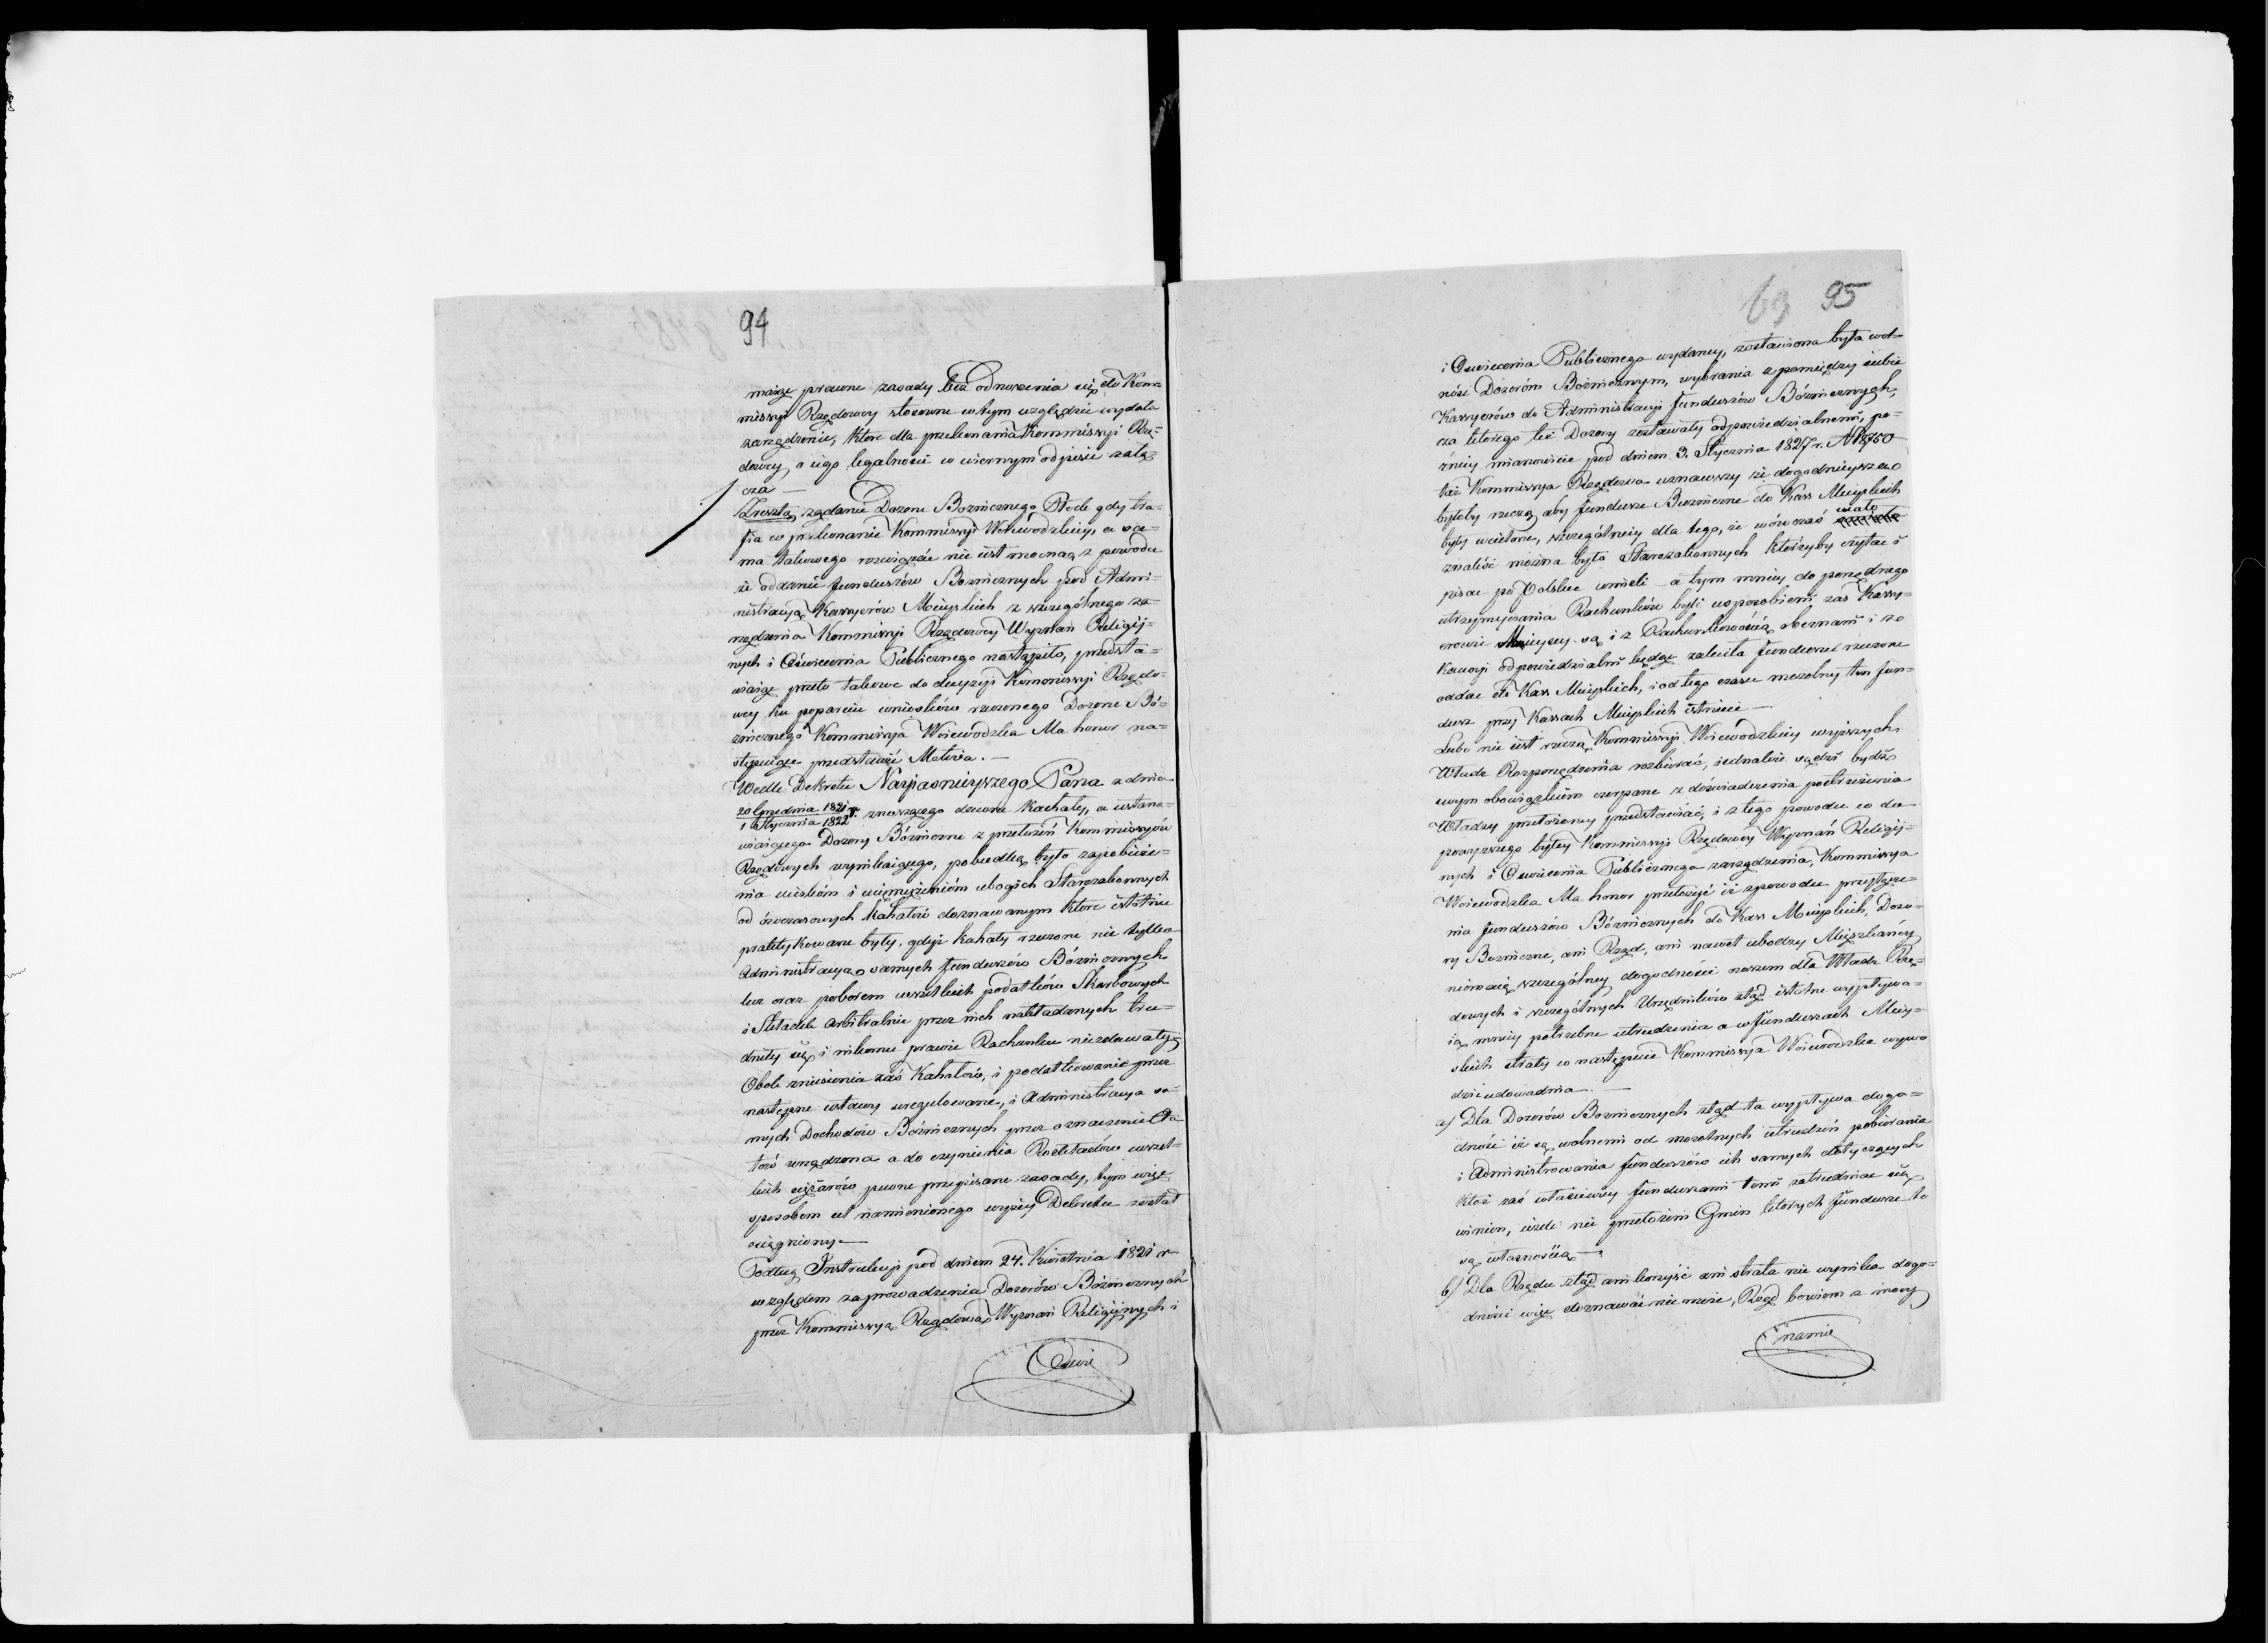 94
maiąc prawne zasady bez odnoszenia się do Kom=
missyi Rządowey stosowne w tym względzie wydała
zarządzenie, które dla przekonania Kommissyi Rzą=
dowey o iego legalności w wiernym odpisie załą=
cza —
Zresztą, żądanie Dozoru Bożniczego Płock gdy tra=
fia w przekonanie Kommissyi Woiewódzkiey, a sa=
ma takowego rozwiązać nie iest mocną, z powodu
że oddanie funduszów Bożniczych pod Admi=
nistracyą Kassyerów Mieyskich z szczególnego za=
rządzenia Kommissyi Rządowey Wyznań Religiy=
nych i Oświecenia Publicznego nastąpiło, przedsta=
wiaiąc przeto takowe do decyzyi Kommissyi Rządo=
wey ku poparciu wniosków rzeczonego Dozoru Bó=
żniczego Kommissya Woiewódzka Ma honor na=
stępuiące przedstawić Motiva. —
Wedle Dekretu Nayjaśnieyszego Pana z dnia
20 Grudnia 1821 / 1 Stycznia 1822 r. znoszącego dawne Kachały, a ustana=
wiaiącego Dozory Bóżnicze z przełożeń Kommissyów
Rządowych wynikaiącego, pobudką było zapobieże=
nia uciskóm i uciemiężenióm ubogich Starozakonnych
od ówczasowych Kahałów doznawanym które istotnie
praktykowane były, gdyż kahały rzeczone nie tylko
Administracyą samych funduszów Bóżniczych
lecz oraz poborem wszelkich podatków Skarbowych
i Składek arbitralnie przez nich nakładanych tru=
dniły się i nikomu prawie Rachunku niezdawały,
Obok zniesienia zaś Kahałów, i podatkowanie przez
następne ustawy uregulowane, i Administracya sa=
mych Dochodów Bóżniczych przez oznaczenie Eta=
tów urządzona a do czynienia Rozkładów wszel=
kich ciężarów pewne przepisane zasady, tym więc
sposobem cel namienionego wyżey Dekretu został
osiągniony —
Podług Instrukcyi pod dniem 24. Kwietnia 1821 r
względem zaprowadzenia Dozorów Bóżniczych
przez Kommissyą Rządową Wyznań Religiynych i
Oswie
63 95
i Oświecenia Publicznego wydaney, zostawiona była wol=
ność Dozoróm Bożniczym, wybrania z pomiędzy siebie
Kassyerów do Administracyi funduszów Bóżniczych,
za którego też Dozory zostawały odpowiedzialnemi, po=
źniey mianowicie pod dniem 3. Stycznia 1827 r. N
taż Kommissya Rządowa uznawszy że dogodnieyszą
byłoby rzeczą, aby fundusze Bożnicze do Kass Mieyskich
były wcielone, szczególniey dla tego, że wówczas mało
znaleść można było Starozakonnych którzyby czytać i
pisać po Polsku umieli a tym mniey do porządnego
utrzymywania Rachunków byli usposobieni zaś Kassy=
erowie Mieyscy są i z Rachunkowością obeznani i za
Kaucyi odpowiedzialni będąc zaleciła fundusze rzeczone
oddać do Kass Mieyskich, i od tego czasu mozolny ten fun=
dusz przy Kassach Mieyskich istnieie —
Lubo nie iest rzeczą Kommissyi Woiewódzkiey wyższych
Władz Rozporządzenia rozbierać, iednakże sądzi bydź
swym obowiązkiem czerpane z doświadczenia postrzeżenia
Władzy przełożoney przedstawiać, i z tego powodu co do
powyższego byłey Kommissyi Rządowey Wyznań Religiy=
nych i Oświecenia Publicznego zarządzenia, Kommissya
Woiewódzka Ma honor przełożyć iż z powodu przyłącze=
nia funduszów Bóżniczych do Kass Mieyskich, Dozo=
ry Bożnicze, ani Rząd, ani nawet ubodzy Mieszkańcy
nieznaią szczególney dogodności owszem dla Władz Rzą=
dowych i szczególnych Urzędników ztąd istotne wypływa=
ią mniey potrzebne utrudzenia a w funduszach Miey=
skich straty co następnie Kommissya Woiewódzka wywo
dzi i udowadnia. —
a) Dla Dozorów Bożniczych ztąd ta wypływa dogo=
dność iż są wolnemi od mozolnych utrudzeń pobierania
i Administrowania funduszów ich samych dotyczących
Któż zaś właściwiey funduszami temi zatrudniać się
winien, ieżeli nie przełożeni Gmin których fundusze te
są własnością —
b) Dla Rządu ztąd ani korzyść ani strata nie wynika dogo=
dności więc doznawać nie może, Rząd bowiem z mocy
namie